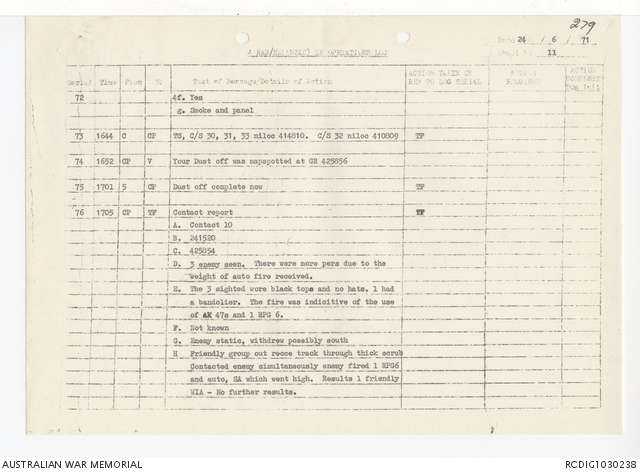 279
24 / 6 / 71
11
OPERATIONS LOG
Serial Time From To Text of Message/Details of Action ACTION TAKEN OR REF TO LOG SERIAL ACTION
72 4f. Yes
g. Smoke and panel
73 1644 C CP TS, C/S 30, 31, 33 niloc 414810. C/S 32 niloc 410809 TF
74 1652 CP V Your Dust off was mapspotted at GR 425856
75 1701 5 CP Dust off complete now TF
76 1705 CP TF Contact report TF
A. Contact 10
B. 241520
C. 425854
D. 3 enemy seen. There were more pers due to the
weight of auto fire received.
E. The 3 sighted wore black tops and no hats, 1 had
a bandolier. The fire was indicitive of the use
of AK 47s and 1 RPG 6.
F. Not known
G. Enemy static, withdrew possibly south
H Friendly group out recce track through thick scrub
Contacted enemy simultaneously enemy fired 1 RPG6
and auto, SA which went high. Results 1 friendly
WIA - No further results.
AUSTRALIAN WAR MEMORIAL RCDIG1030238